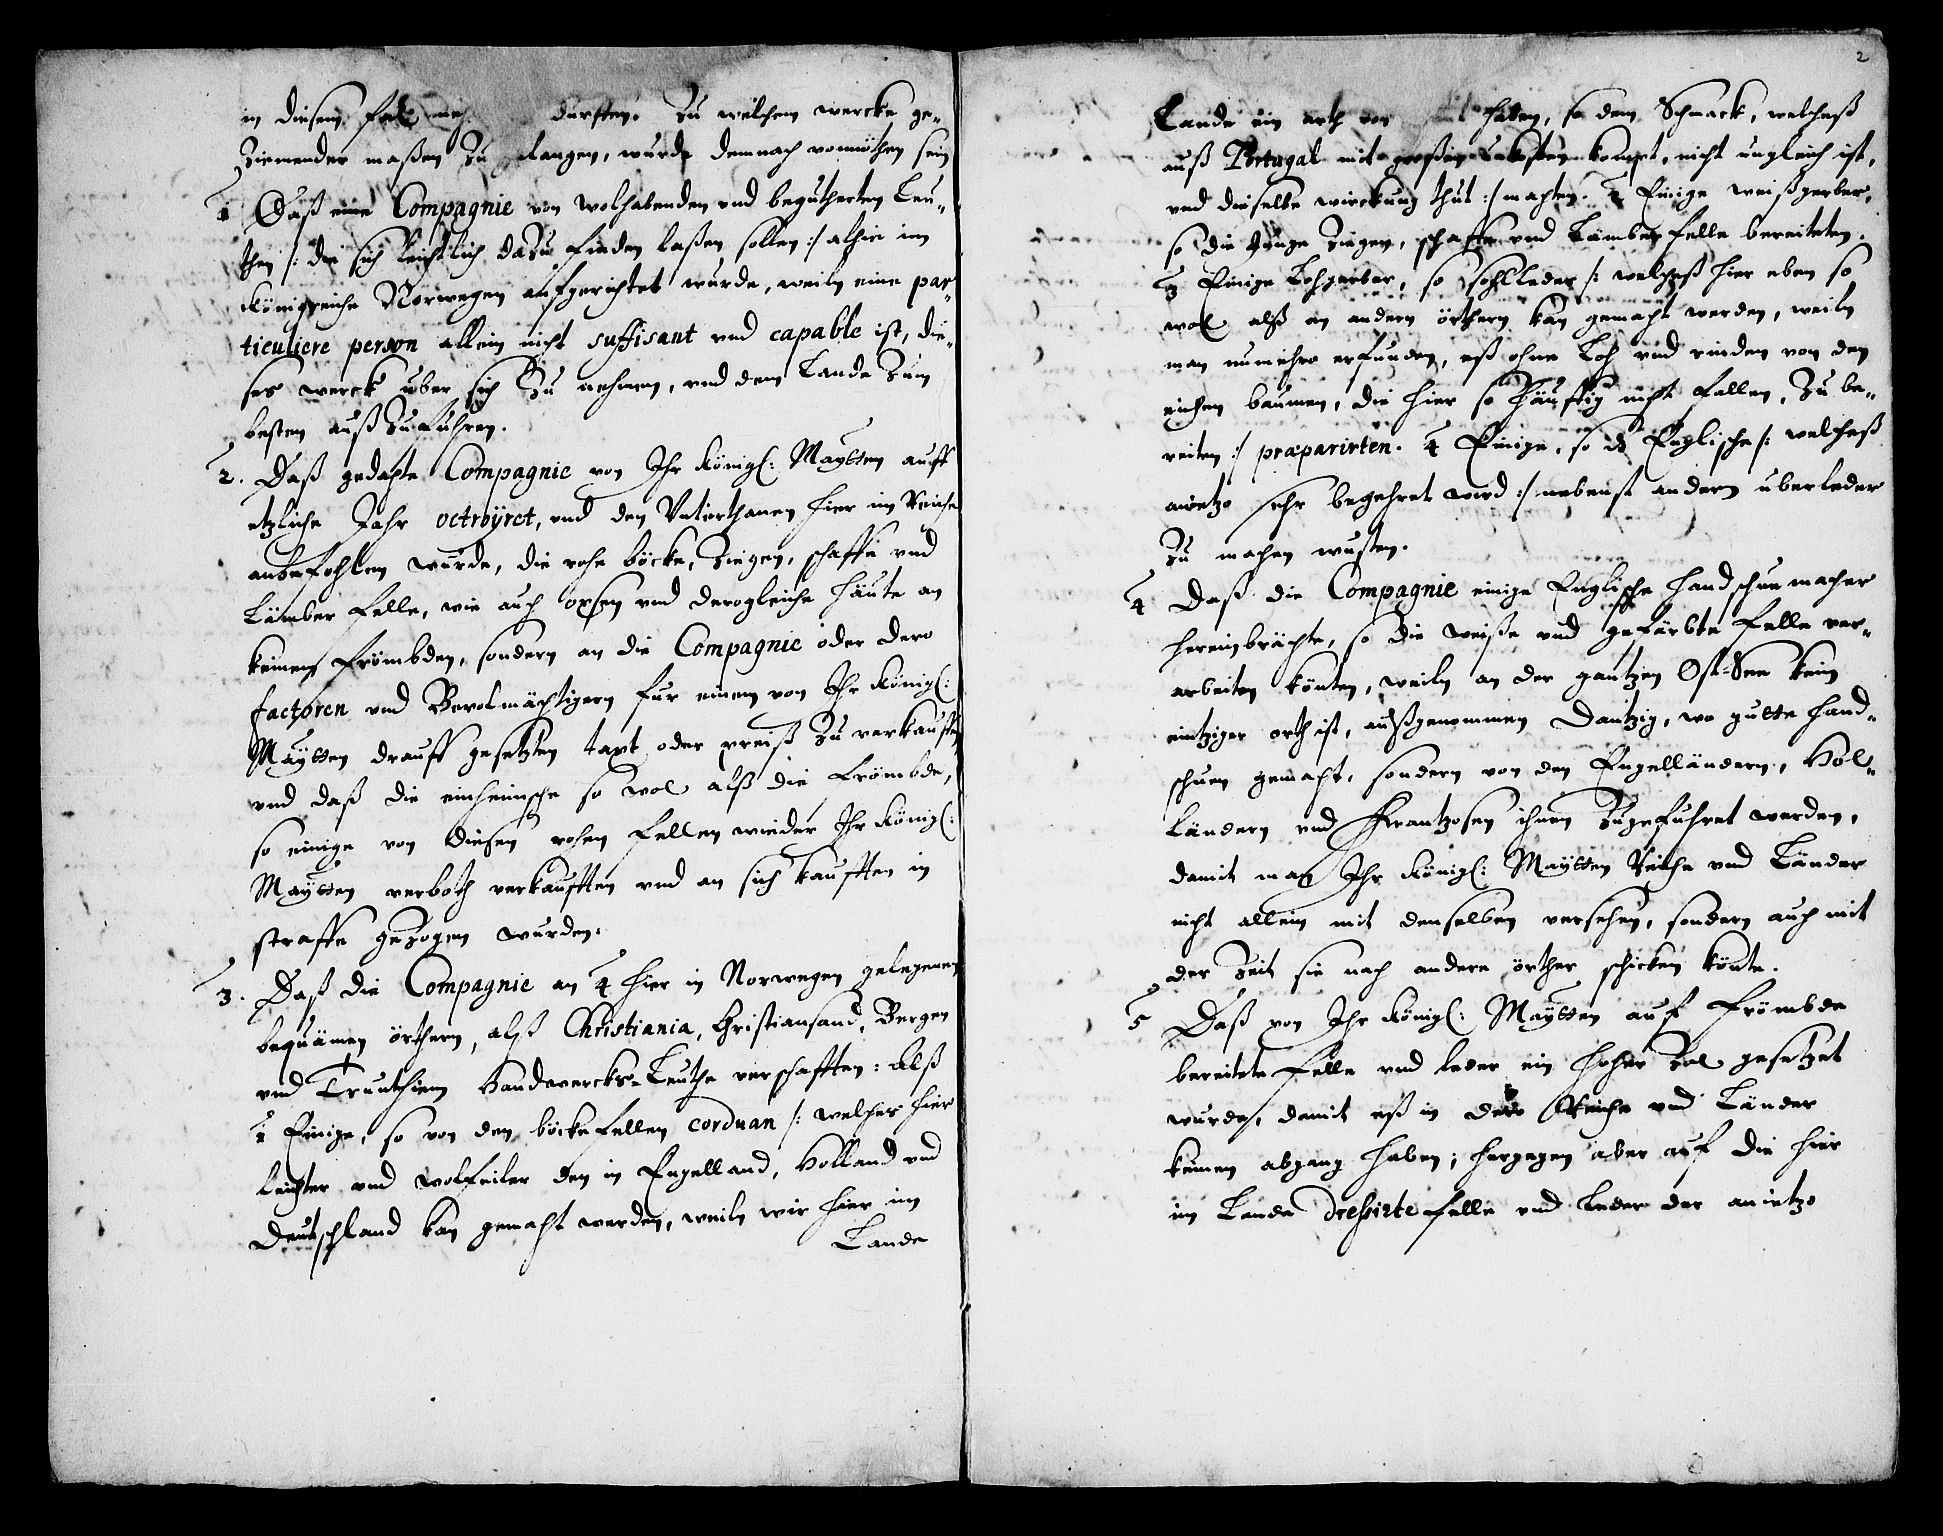 in diesem fal durfften. Zu welchem wercke ge-
ziemender maßen zu gelangen, wurde demnach vonnöthen sein
1 Daß eine Compagnie von wolhabenden und begutherten Leu-
then /: die sich leichtlich dazu finden laßen sollen :/ alhie im
Königreiche Norwegen auffgerichtet wurde, weiln eine par-
ticuliere person allein nicht suffisant und capable ist, die-
ses werck uber sich zu nehmen, und dem Lande zum
besten außzufuhren.
2. Daß gedachte Compagnie von Ihr Königl: Maÿtten auff
etzliche Jahr octroÿret, und den Unterthanen hier im Reiche
anbefohlen wurde, die rohe böcke, ziegen, schaffe und
Lämber felle, wie auch oxsen und derogleiche häute an
keinen frömbden, sondern an die Compagnie oder dero
factoren und Bevolmächtigern fur einem von Ihr Königl:
Maÿtten drauff gesetzten taxt oder preiß zu verkauffen
und daß die einheimsche so wol alß die frömbde,
so einige von diesen rohen fellen wieder Ihr Königl:
Maÿtten verboth verkaufften und an sich kaufften in
straffe gezogen wurden.
3. Daß die Compagnie an 4 hier in Norwegen gelegenen
bequämen örthern, alß Christiania, Christiansand, Bergen
und Truuthiem Handwercks-Leuthe verschafften: Alß
1 Einige, so von den böcke fellen corduan /: welcher hier
leichter und wolfeiler den in Engelland, Holland und
Deutschland kan gemacht werden, weiln wir hier im
Lande
2
Lande ein arth von haben, so dem Schmack, welcheß
auß Portugal mit großen unkosten kompt, nicht ungleich ist,
und dieselbe wirckung thut :/ machten. 2 Einige weißgerber,
so die junge ziegen, schaffe und Lämber felle bereiteten.
3 Einige Lohgerber, so sohlleder /: welcheß hier eben so
wol alß an andern örthern kan gemacht werden, weiln
man nunmehro erfunden, eß ohne Loh und rinden von den
eichen baumen, die hier so häuffig nicht fallen, zu be-
reiten :/ præparirten. 4 Einige, so d Englische /: welcheß
anietzo sehr begehret wird :/ nebenst andern uberleder
zu machen wusten.
4 Daß die Compagnie einige Englische handschuemacher
hereinbrächte, so die weiße und gefärbte felle ver-
arbeiten könten, weiln an der gantzen Ost-See kein
eintziger orth ist, außgenommen Dantzig, wo gutte hand-
schuen gemacht, sondern von den Engelländern, Hol-
ländern und Frantzosen ihnen zugefuhret werden,
damit man Ihr Königl: Maÿtten Reiche und Länder
nicht allein mit denselben versehen, sondern auch mit
der Zeit sie nach andere örther schicken könte.
5 Daß von Ihr Königl: Maÿtten auf frömbde
bereitete felle und leder ein hoher Zol gesetzet
wurde, damit eß in dero Reiche und Länder
keinen abgang haben; hergegen aber auf die hier
im Lande dreßirte felle und leder der anietzo